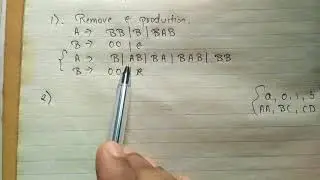 1). Remove e production.
A → BB | B | BAB
B → 00 | e
A → B | AB | BA | BAB | BB
B → 00
2)
{a, 0, 1, S
AA, BC, CD